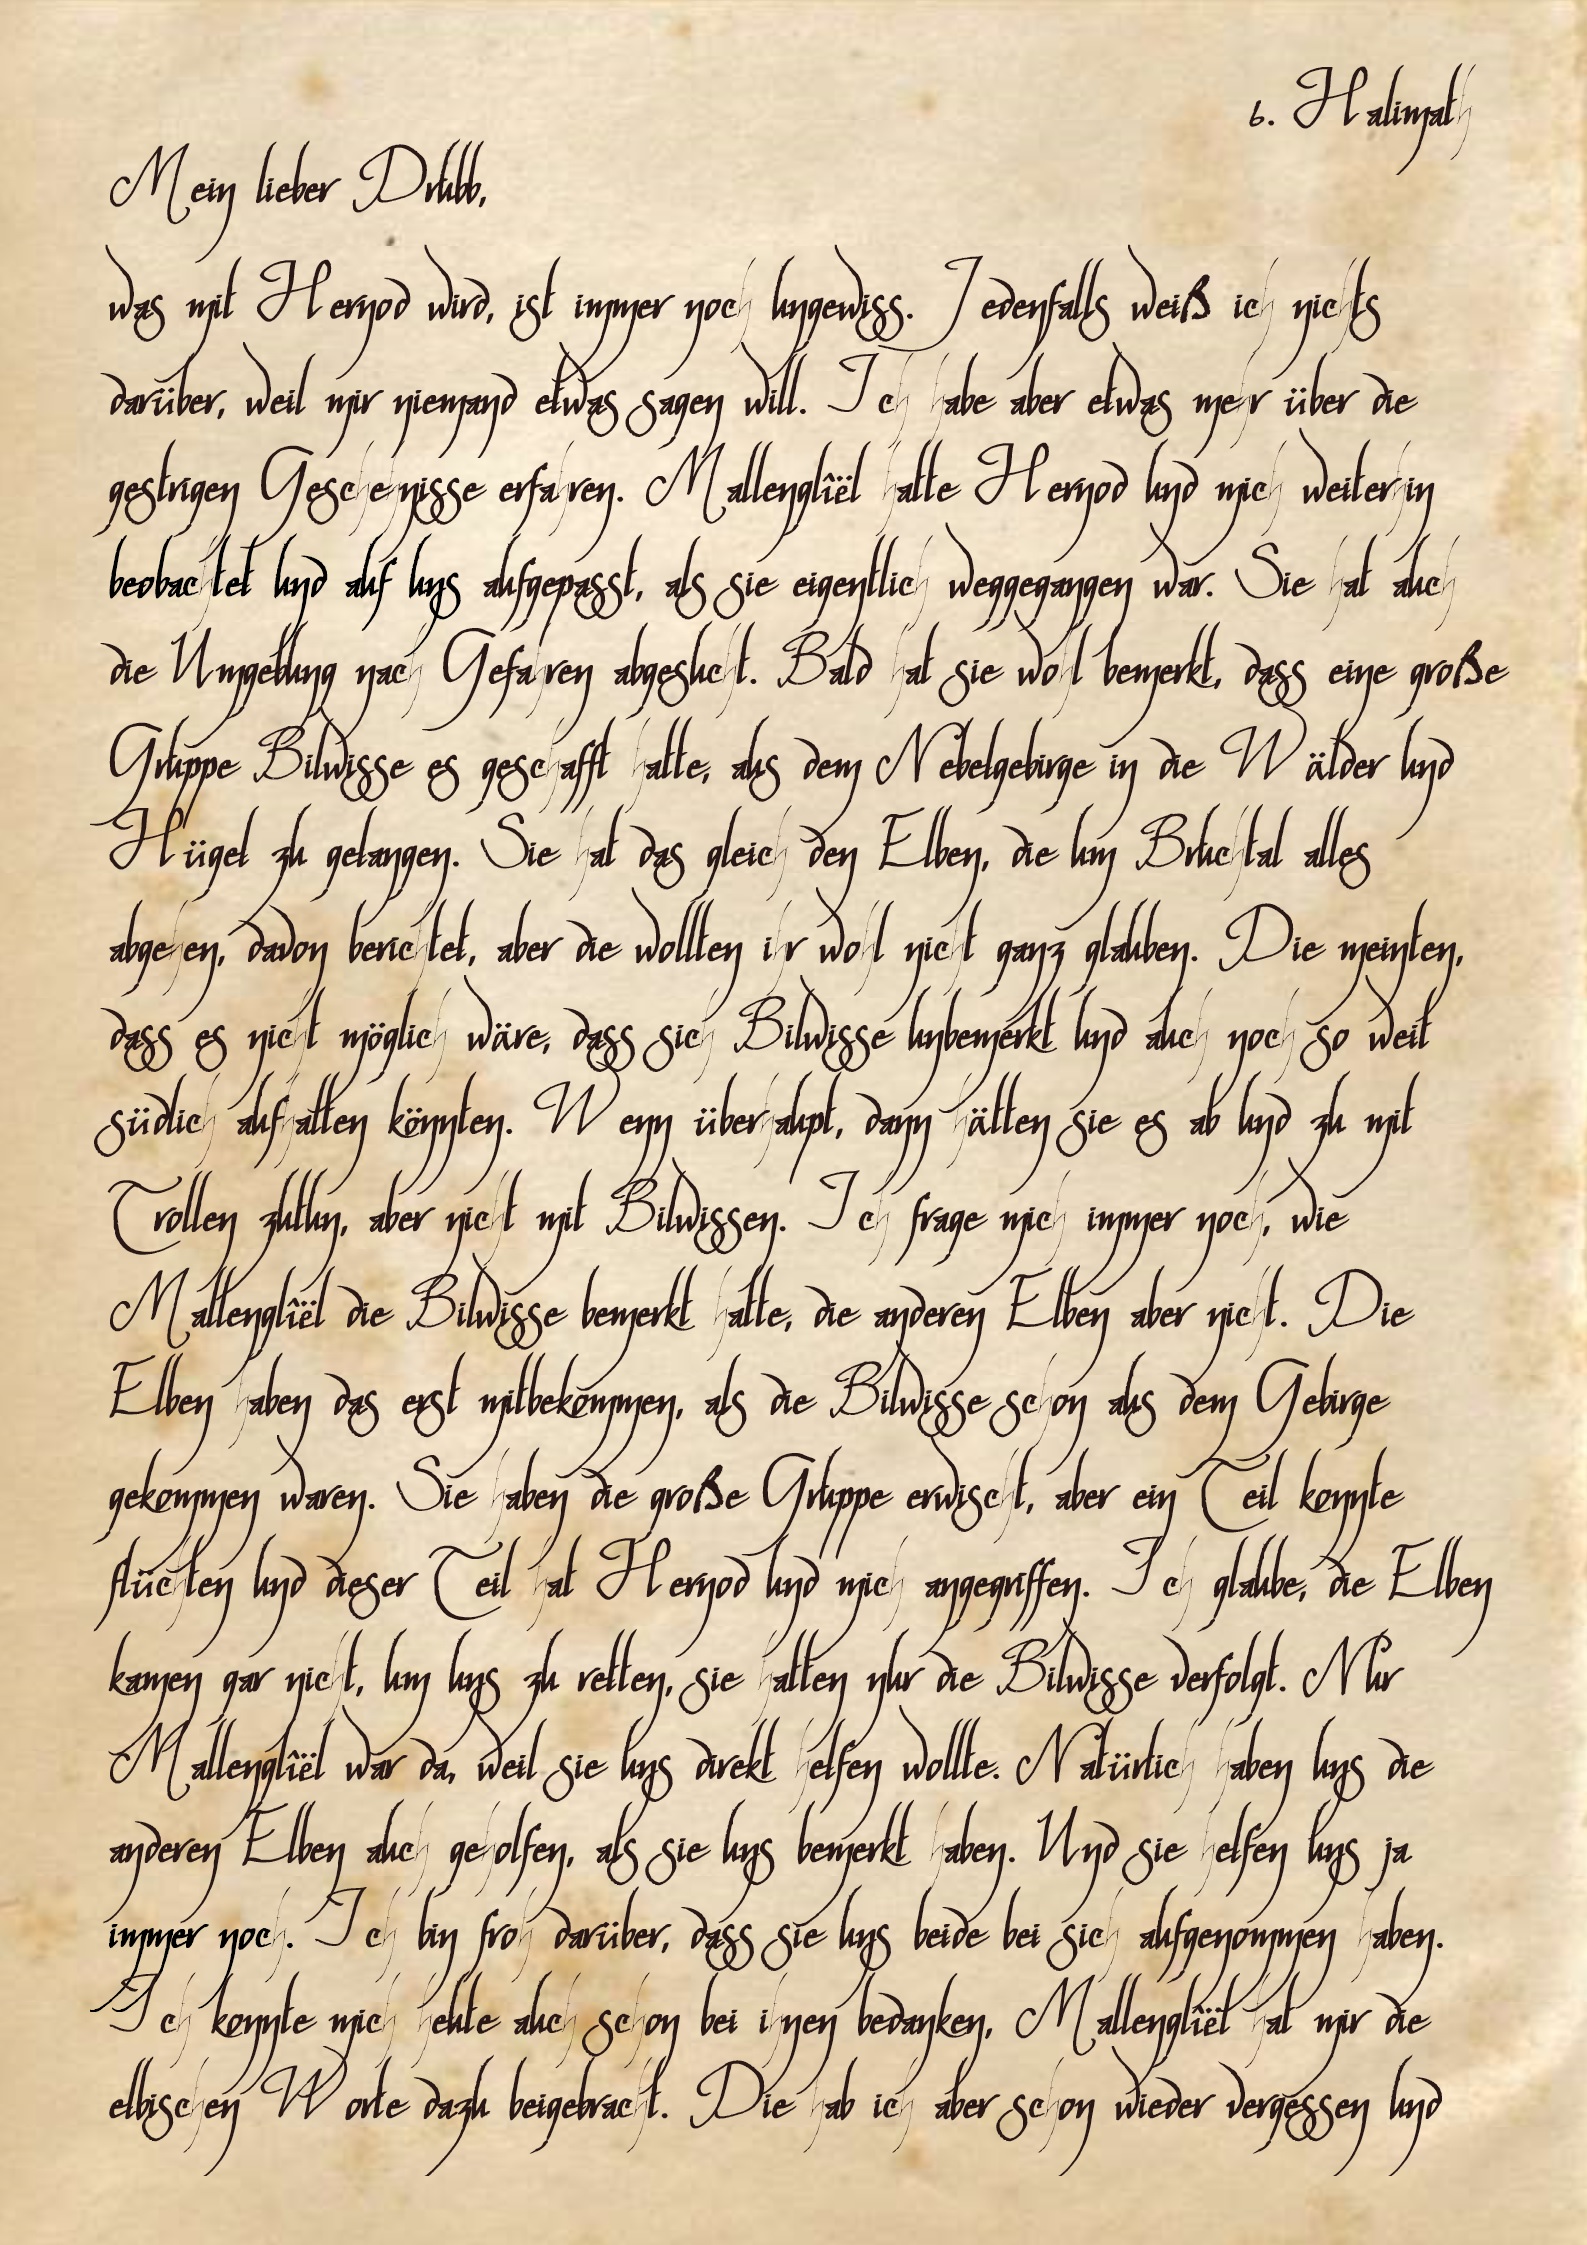 6. Halimath
Mein lieber Drubb,
was mit Hernod wird, ist immer noch ungewiss. Jedenfalls weiß ich nichts
darüber, weil mir niemand etwas sagen will. Ich habe aber etwas mehr über die
gestrigen Geschehnisse erfahren. Mallenglîël hatte Hernod und mich weiterhin
beobachtet und auf uns aufgepasst, als sie eigentlich weggegangen war. Sie hat auch
die Umgebung nach Gefahren abgesucht. Bald hat sie wohl bemerkt, dass eine große
Gruppe Bilwisse es geschafft hatte, aus dem Nebelgebirge in die Wälder und
Hügel zu gelangen. Sie hat das gleich den Elben, die um Bruchtal alles
abgehen, davon berichtet, aber die wollten ihr wohl nicht ganz glauben. Die meinten,
dass es nicht möglich wäre, dass sich Bilwisse unbemerkt und auch noch so weit
südlich aufhalten könnten. Wenn überhaupt, dann hätten sie es ab und zu mit
Trollen zutun, aber nicht mit Bilwissen. Ich frage mich immer noch, wie
Mallenglîël die Bilwisse bemerkt hatte, die anderen Elben aber nicht. Die
Elben haben das erst mitbekommen, als die Bilwisse schon aus dem Gebirge
gekommen waren. Sie haben die große Gruppe erwischt, aber ein Teil konnte
flüchten und dieser Teil hat Hernod und mich angegriffen. Ich glaube, die Elben
kamen gar nicht, um uns zu retten, sie hatten nur die Bilwisse verfolgt. Nur
Mallenglîël war da, weil sie uns direkt helfen wollte. Natürlich haben uns die
anderen Elben auch geholfen, als sie uns bemerkt haben. Und sie helfen uns ja
immer noch. Ich bin froh darüber, dass sie uns beide bei sich aufgenommen haben.
Ich konnte mich heute auch schon bei ihnen bedanken, Mallenglîël hat mir die
elbischen Worte dazu beigebracht. Die hab ich aber schon wieder vergessen und